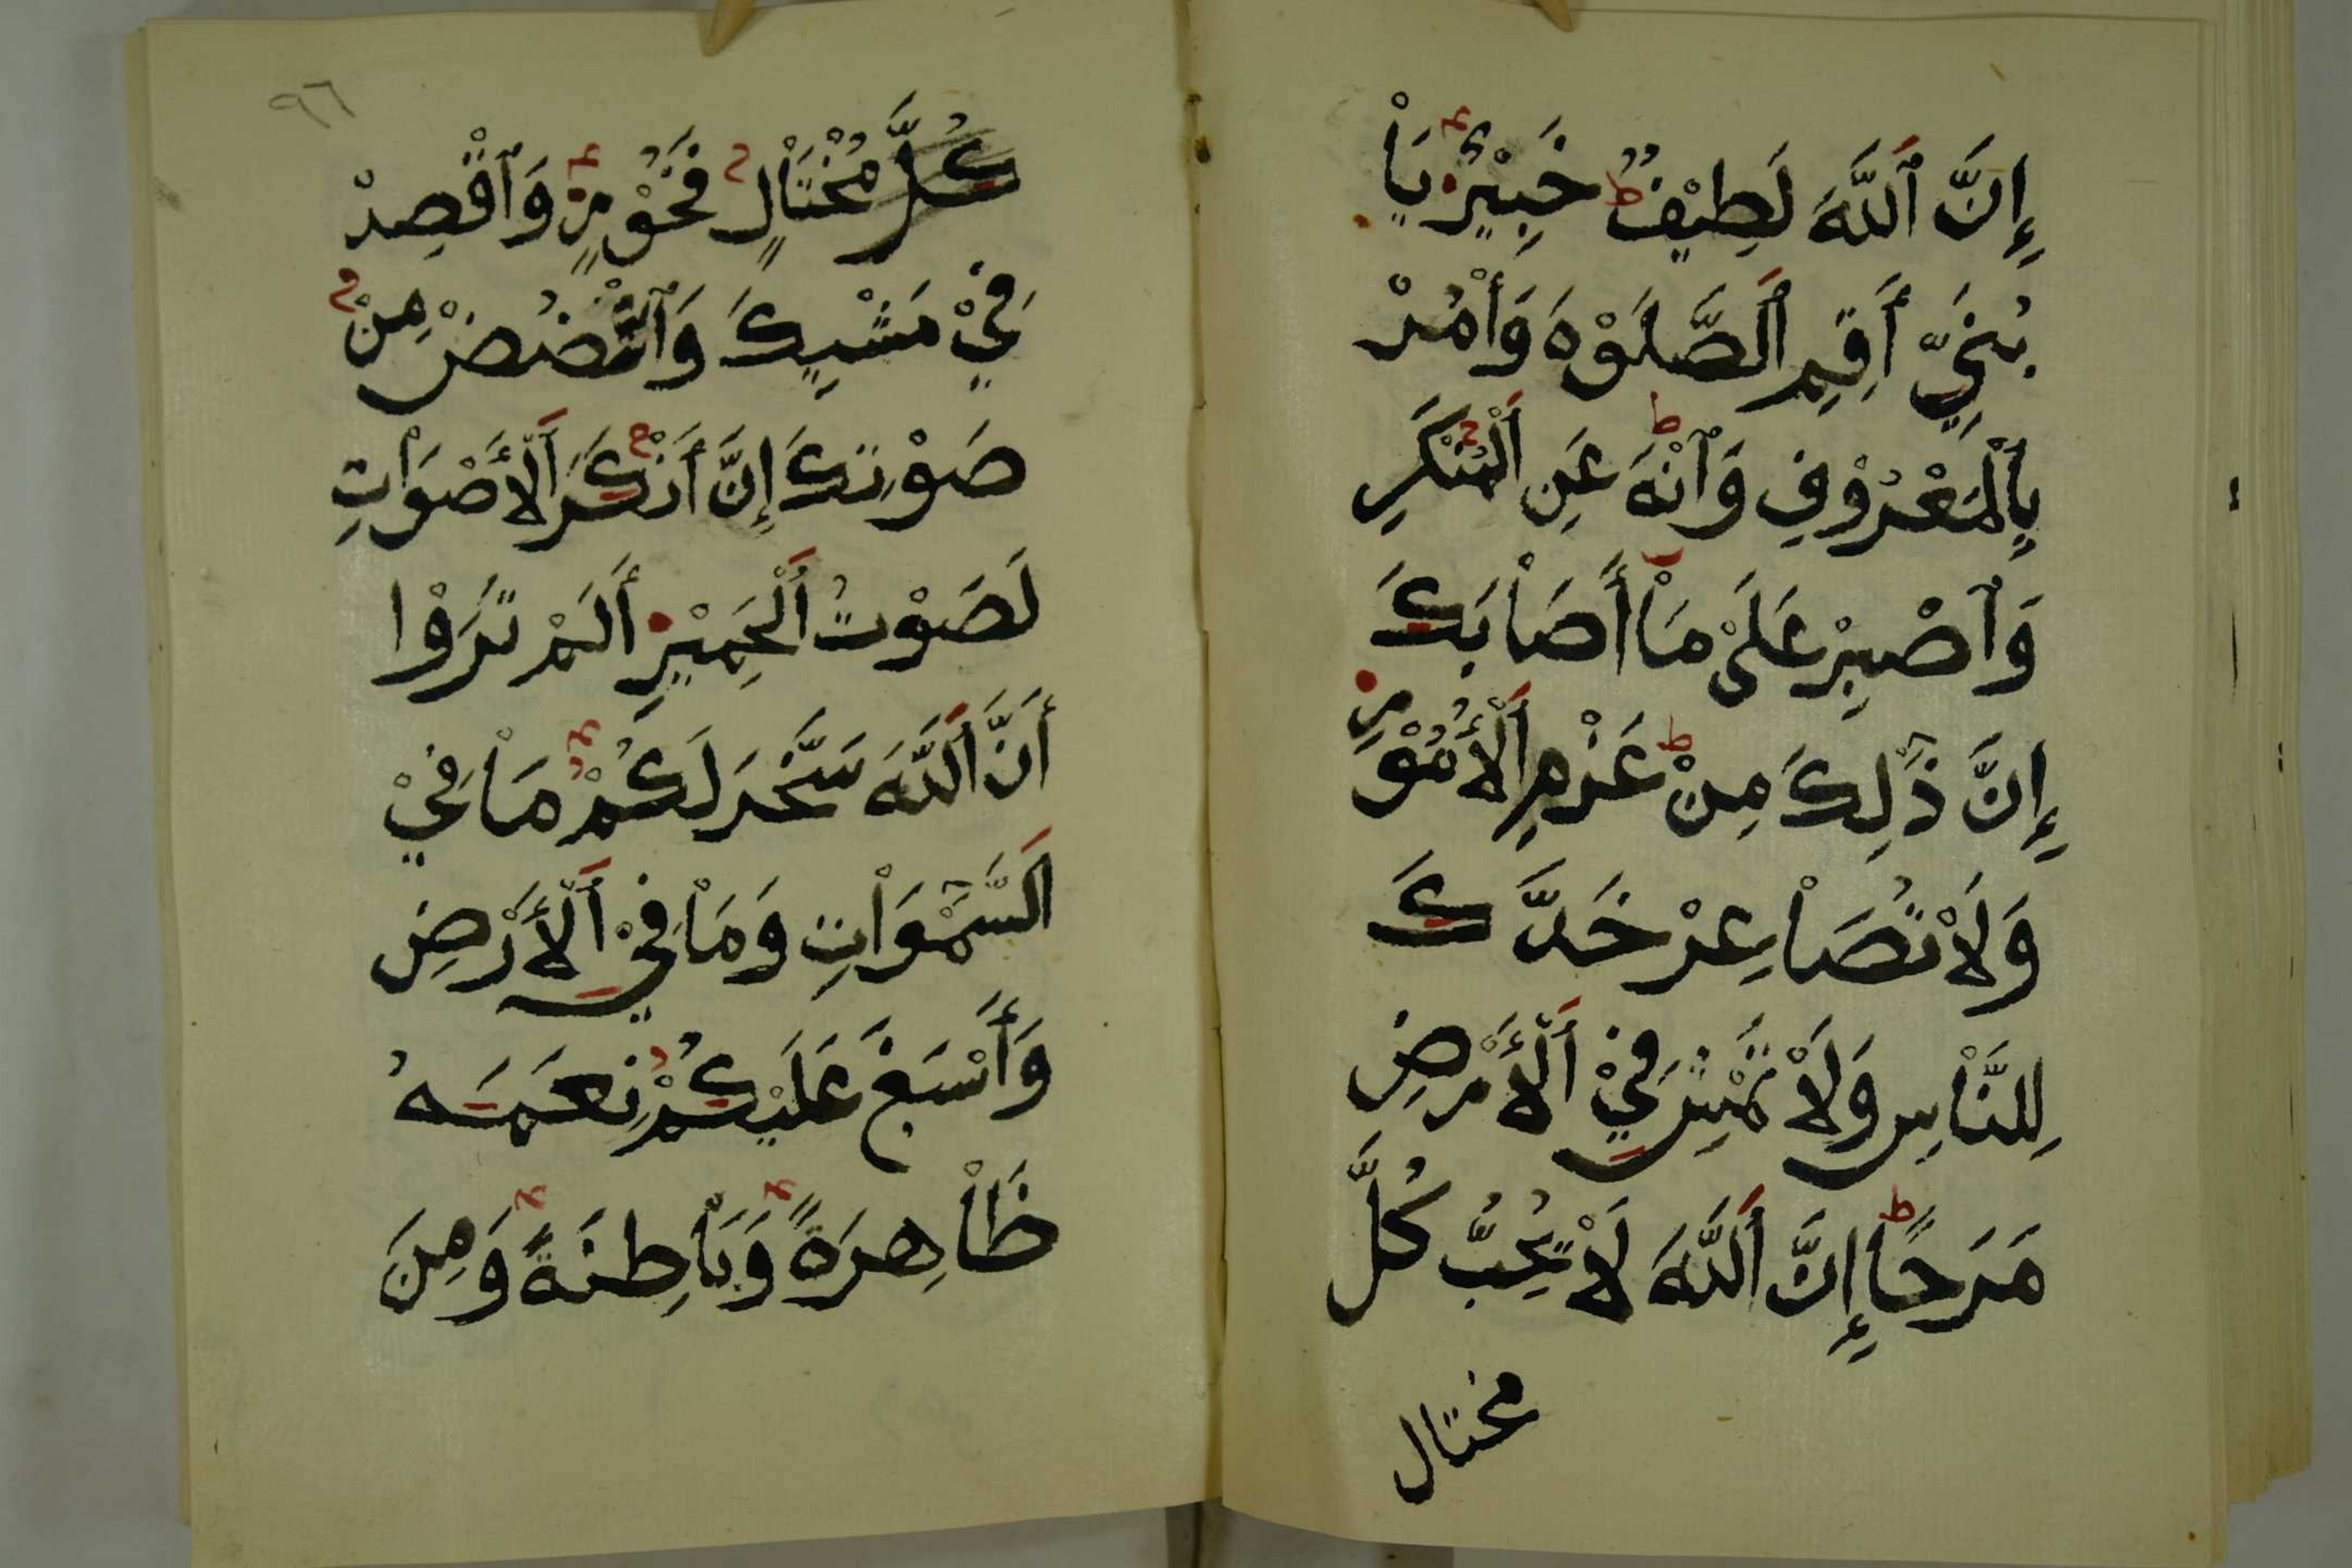 إِنَّ ٱللَّهَ لَطِيْفٌ خَبِيْرٌ يَاْ
بُنَيِّ أَقِمِ ٱلصَّلَوٰةَ وَأْمُرْ
بِٱلْمَعْرُوْفِ وَٱنْهَ عَنِ ٱلْمُنْكَرِ
وَٱصْبِرْ عَلَىْ مَاْ أَصَاْبَكَ
إِنَّ ذَٰلِكَ مِنْ عَزْمِ ٱلْأُمُوْرِ
وَلَاْ تُصَاْعِرْ خَدَّكَ
لِلنَّاْسِ وَلَاْ تَمْشِ فِيْ ٱلْأَرْضِ
مَرَحًا إِنَّ ٱللَّهَ لَاْ يُحِبُّ كُلَّ
مختال
٩٦
كُلَّ مُخْتَاْلٍ فَخُوْرٍ وَٱقْصِدْ
فِيْ مَشْيِكَ وَٱغْضُضْ مِنْ
صَوْتِكَ إِنَّ أَنْكَرَ ٱلْأَصْوَاْتِ
لَصَوْتُ ٱلْحَمِيْرِ أَلَمْ تَرَوْا
أَنَّ ٱللَّهَ سَخَّرَ لَكُمْ مَاْ فِيْ
ٱلسَّمَٰوَاْتِ وَمَاْ فِيْ ٱلْأَرْضِ
وَأَسْبَغَ عَلَيْكُمْ نِعَمَهُ
ظَاْهِرَةً وَبَاْطِنَةً وَمِنَ